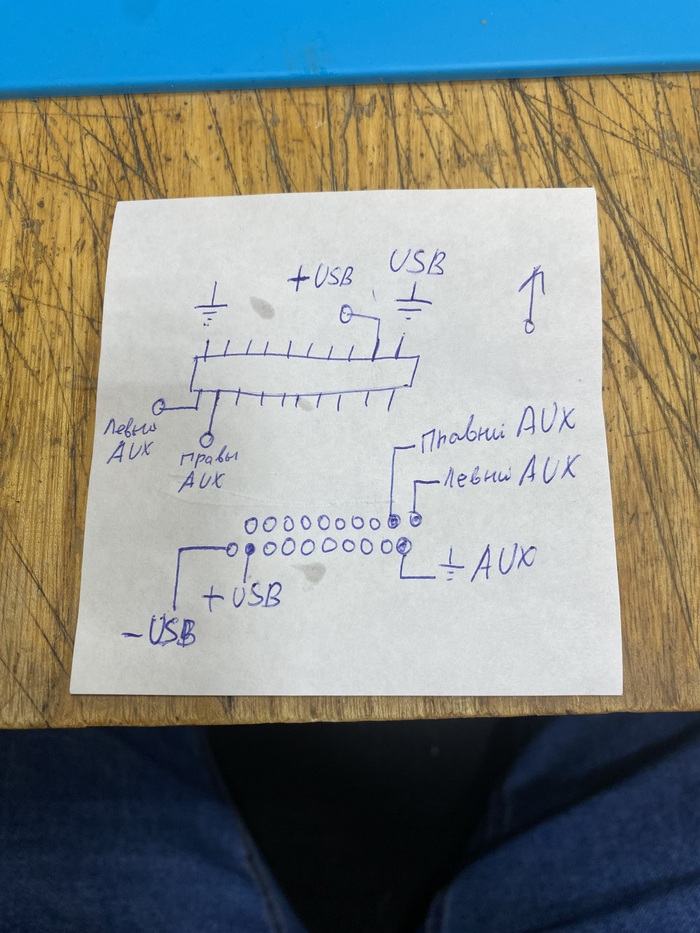 +USB
USB
Левый
AUX
Правы
AUX
Правый AUX
Левый AUX
AUX
+USB
-USB